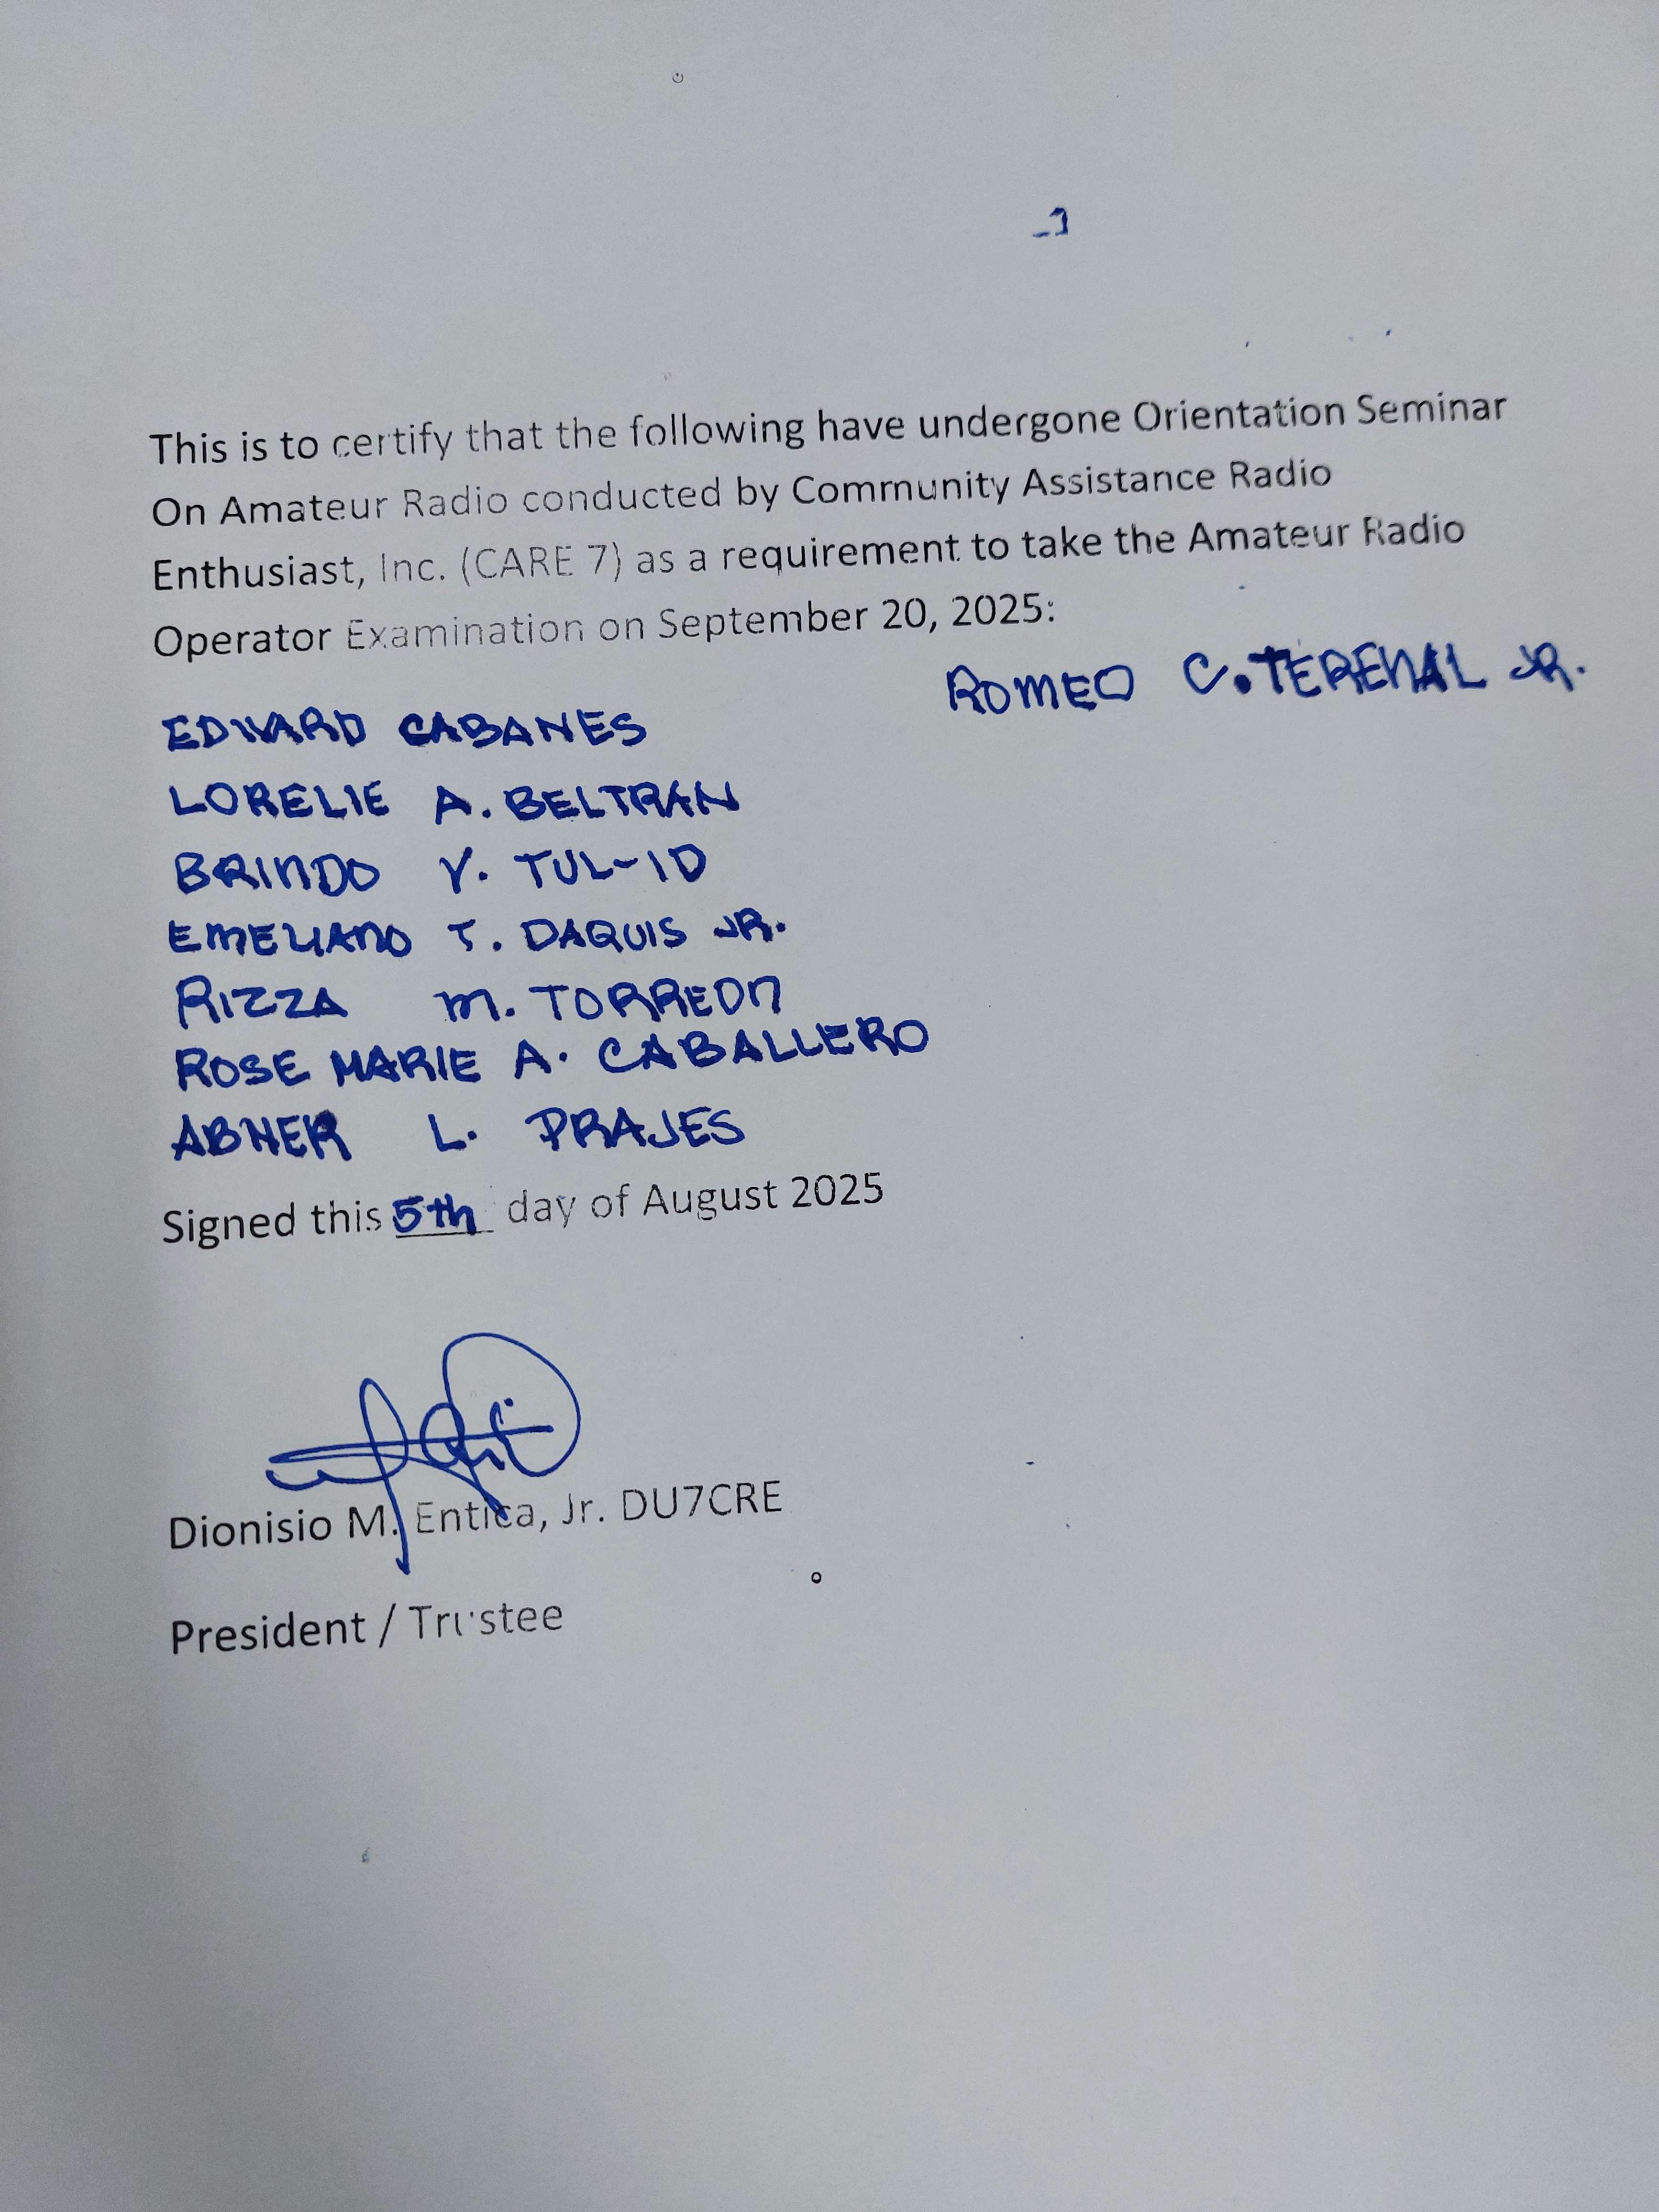 This is to certify that the following have undergone Orientation Seminar
On Amateur Radio conducted by Community Assistance Radio
Enthusiast, Inc. (CARE 7) as a requirement to take the Amateur Radio
Operator Examination on September 20, 2025:
ROMEO C. TERENAL JR.
EDWARD CABANES
LORELIE A. BELTRAN
BRINDO Y. TUL-ID
EMELIANO T. DAQUIS JR.
RIZZA M. TORREON
ROSE MARIE A. CABALLERO
ABNER L. PRAJES
Signed this 5th day of August 2025
Dionisio M. Entica, Jr. DU7CRE
President / Trustee